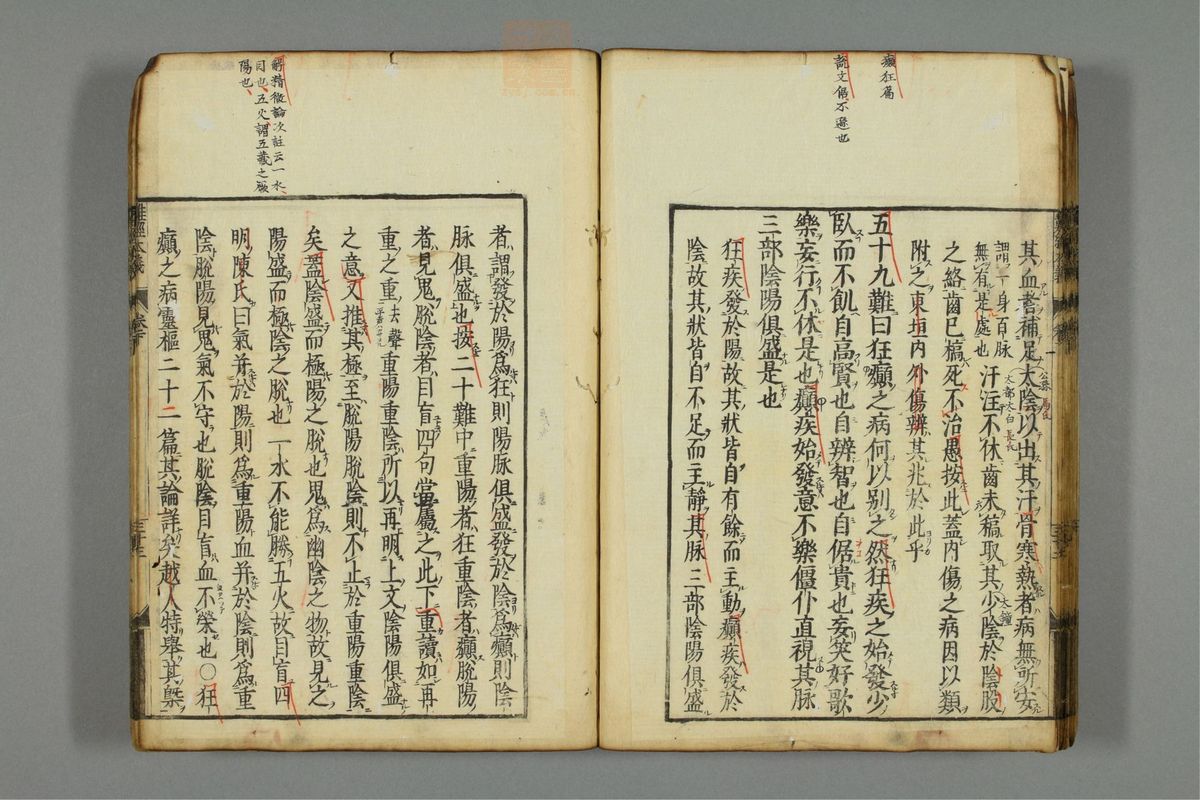 癲狂篇
說文倨不遜也
其血者補足太陰以出其汗骨寒熱者病無所安
謂一身百脉
無有是處也
汗注不休齒未槁取其少陰於陰股
之絡齒已槁死不治愚按此蓋內傷之病因以類
附之東垣內外傷辨其兆於此乎
五十九難曰狂癲之病何以別之然狂疾之始發少
臥而不飢自高賢也自辨智也自倨貴也妄笑好歌
樂妄行不休是也癲疾始發意不樂僵仆直視其脉
三部陰陽俱盛是也
狂疾發於陽故其狀皆自有餘而主動癲疾發於
陰故其狀皆自不足而主靜其脉三部陰陽俱盛
解精微論次註云一水
目也五火謂五藏之厥
陽也
者謂發於陽爲狂則陽脉俱盛發於陰爲癲則陰
脉俱盛也按二十難中重陽者狂重陰者癲脫陽
者見鬼脫陰者目盲四句當屬之此下重讀如再
重之重去聲重陽重陰所以再明上文陰陽俱盛
之意又推其極至脫陽脫陰則不止於重陽重陰
矣蓋陰盛而極陽之脫也鬼爲幽陰之物故見之
陽盛而極陰之脫也一水不能勝五火故目盲四
明陳氏曰氣并於陽則爲重陽血并於陰則爲重
陰脫陽見鬼氣不守也脫陰目盲血不榮也○狂
癲之病靈樞二十二篇其論詳矣越人特舉其槩